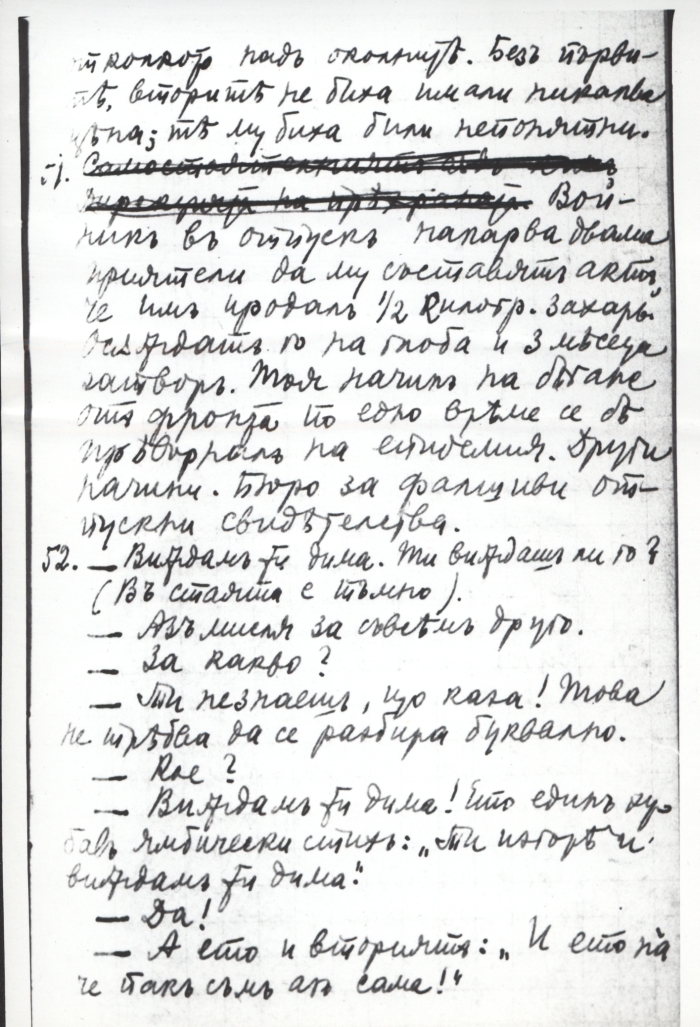 надъ околнитѣ. Безъ първи-
тѣ, вторитѣ не биха имали никаква
цѣна; тѣ му биха били непонятни.
51. Самостоятелниятъ
на Вой-
никъ въ отпускъ накарва двама
приятели да му съставятъ актъ,
че имъ продалъ 1/2 килогр. захарь.
Осѫждатъ го на глоба и 3 мѣсеца
затворъ. Тоя начинъ на бѣгане
отъ фронта по едно врѣме се бѣ
прѣвърналъ на епидемия. Други
начини. Бюро за фалшиви от-
пускни свидѣтелства.
52. — Виждамъ ѝ дима. Ти виждашъ ли го?
(Въ стаята е тъмно).
— Азъ мисля за съвсѣмъ друго.
— За какво?
— Ти незнаешъ, що каза! Това
не трѣбва да се разбира буквално.
— Кое?
— Виждамъ ѝ дима! Ето единъ ху-
бавъ ямбически стихъ: „Ти изгорѣ и
виждамъ ѝ дима."
— Да!
— А ето и вториятъ: „И ето на
че пакъ съмъ аз сама!"